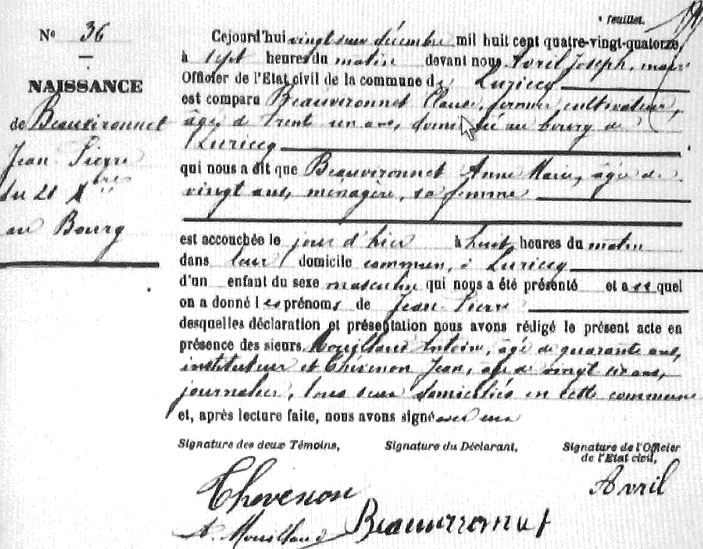 feuillet.
N° 36
NAISSANCE
de Beauvironnet
Jean Pierre
du 21 Xbre
au Bourg
Cejourd'hui vingt deux décembre mil huit cent quatre-vingt-quatorze,
à sept heures du matin devant nous Avril Joseph, maire
Officier de l'Etat civil de la commune de Luriecq
est comparu Beauvironnet Claude, fermier, cultivateur,
âgé de trent un ans, domicilié au bourg de
Luriecq
qui nous a dit que Beauvironnet Anne Marie, âgée de
vingt ans, ménagère, sa femme
est accouchée le jour d'hier à huit heures du matin
dans leur domicile commun, à Luriecq
d'un enfant du sexe masculin qui nous a été présenté et auquel
on a donné les prénoms de Jean Pierre
desquelles déclaration et présentation nous avons rédigé le présent acte en
présence des sieurs Mouilland Antoine, âgé de quarante ans,
instituteur et Thévenon Jean, âgé de vingt ans,
journalier, tous deux domiciliés en cette commune
et, après lecture faite, nous avons signé avec eux
Signature des deux Témoins,
Signature du Déclarant,
Signature de l'Officier
de l'Etat civil,
Thevenon
Avril
A. Mouilland
Beauvironnet